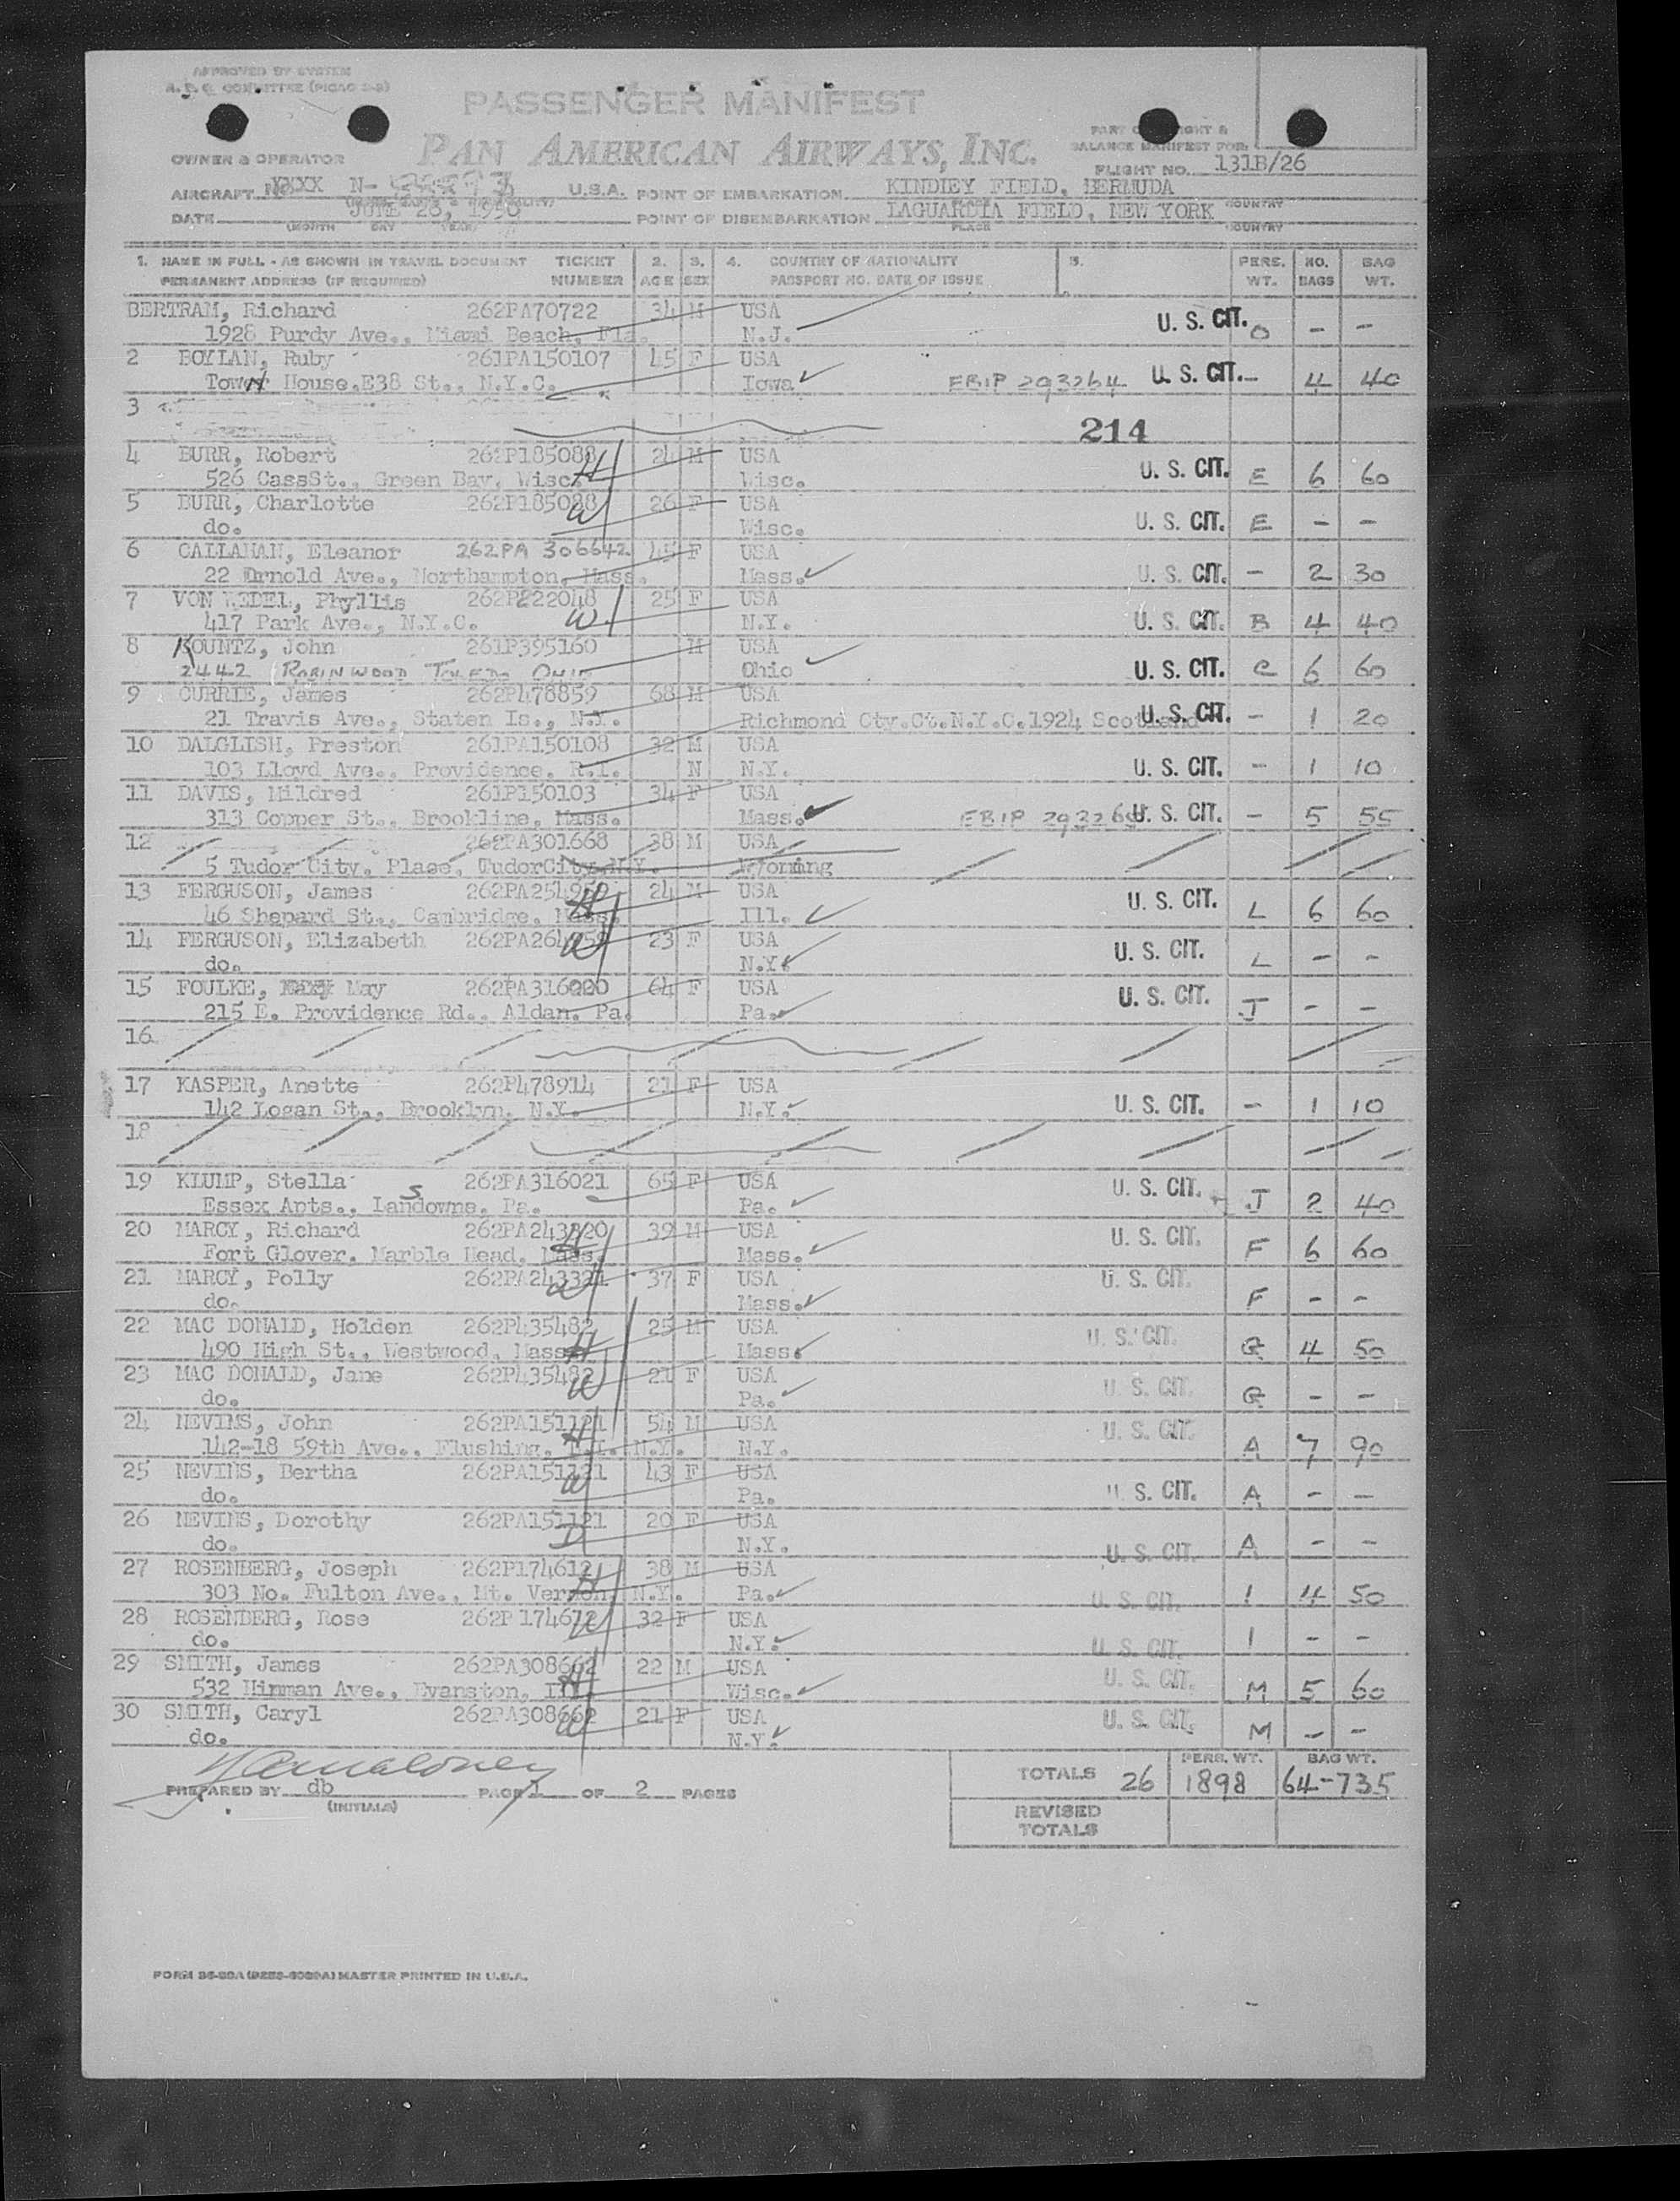 APPROVED BY SYSTEM
A. T. C. COMMITTEE (PICAO 2-2)
PASSENGER MANIFEST
PAN AMERICAN AIRWAYS, INC.
PART OF WEIGHT &
BALANCE MANIFEST FOR
OWNER & OPERATOR
FLIGHT NO. 131B/26
AIRCRAFT NO XXXX N- U.S.A. POINT OF EMBARKATION KINDLEY FIELD, BERMUDA
COUNTRY
DATE JUNE 26, 1950 POINT OF DISEMBARKATION LAGUARDIA FIELD, NEW YORK
(MONTH DAY YEAR) PLACE COUNTRY
1. NAME IN FULL - AS SHOWN IN TRAVEL DOCUMENT TICKET 2. 3. 4. COUNTRY OF NATIONALITY 5. PERS. NO. BAG
PERMANENT ADDRESS (IF REQUIRED) NUMBER AGE SEX PASSPORT NO. DATE OF ISSUE WT. BAGS WT.
BERTRAM, Richard 262PA70722 34 M USA
1928 Purdy Ave., Miami Beach, Fla. N.J. U. S. CIT. O - -
2 BOYLAN, Ruby 261PA150107 45 F USA
Town House.E38 St., N.Y.C. Iowa EBIP 293264 U. S. CIT. - 4 40
3
214
4 BURR, Robert 262P185088 24 M USA
526 CassSt., Green Bay, Wisc. H Wisc. U. S. CIT. E 6 60
5 BURR, Charlotte 262P185088 26 F USA
do. W Wisc. U. S. CIT. E - -
6 CALLAHAN, Eleanor 262PA 306642 45 F USA
22 Arnold Ave., Northampton, Mass. Mass. U. S. CIT. - 2 30
7 VON WEDEL, Phyllis 262P222048 25 F USA
417 Park Ave., N.Y.C. W N.Y. U. S. CIT. B 4 40
8 KOUNTZ, John 261P395160 M USA
2442 ROBINWOOD TOLEDO OHIO Ohio U. S. CIT. C 6 60
9 CURRIE, James 262P478859 68 M USA
21 Travis Ave., Staten Is., N.Y. Richmond Cty.Ct.N.Y.C.1924 Scotland U. S. CIT. - 1 20
10 DALGLISH, Preston 261PA150108 32 M USA
103 Lloyd Ave., Providence, R.I. N N.Y. U. S. CIT. - 1 10
11 DAVIS, Mildred 261P150103 34 F USA
313 Copper St., Brookline, Mass. Mass. EBIP U. S. CIT. - 5 55
12 262PA301668 38 M USA
5 Tudor City, Place, TudorCity.N.Y. Wyoming
13 FERGUSON, James 262PA254959 24 M USA
46 Shepard St., Cambridge, Mass. H Ill. U. S. CIT. L 6 60
14 FERGUSON, Elizabeth 262PA264959 23 F USA
do. W N.Y. U. S. CIT. L - -
15 FOULKE, May 262PA316020 64 F USA
215 E. Providence Rd., Aldan, Pa. Pa. U. S. CIT. J - -
16
17 KASPER, Anette 262P478914 21 F USA
142 Logan St., Brooklyn, N.Y. N.Y. U. S. CIT. - 1 10
18
19 KLUMP, Stella 262PA316021 65 F USA
Essex Apts., Lansdowne, Pa. Pa. U. S. CIT. J 2 40
20 MARCY, Richard 262PA243320 39 M USA
Fort Glover, Marble Head, Mass. H Mass. U. S. CIT. F 6 60
21 MARCY, Polly 262PA243321 37 F USA
do. W Mass. U. S. CIT. F - -
22 MAC DONALD, Holden 262P435482 25 M USA
490 High St., Westwood, Mass H Mass. U. S. CIT. G 4 50
23 MAC DONALD, Jane 262P435482 21 F USA
do. W Pa. U. S. CIT. G - -
24 NEVINS, John 262PA151121 54 M USA
142-18 59th Ave., Flushing, L.I. N.Y. H N.Y. U. S. CIT. A 7 90
25 NEVINS, Bertha 262PA151121 43 F USA
do. W Pa. U. S. CIT. A - -
26 NEVINS, Dorothy 262PA151121 20 F USA
do. D N.Y. U. S. CIT. A - -
27 ROSENBERG, Joseph 262P174612 38 M USA
303 No. Fulton Ave., Mt. Vernon, N.Y. H Pa. U. S. CIT. I 4 50
28 ROSENBERG, Rose 262P174612 32 F USA
do. W N.Y. U. S. CIT. I - -
29 SMITH, James 262PA308662 22 M USA
532 Hinman Ave., Evanston, Ill. H Wisc. U. S. CIT. M 5 60
30 SMITH, Caryl 262PA308662 21 F USA
do. W N.Y. U. S. CIT. M - -
PERS. WT. BAG WT.
TOTALS 26 1898 64-735
PREPARED BY db PAGE 1 OF 2 PAGES
(INITIALS)
REVISED
TOTALS
MASTER PRINTED IN U.S.A.